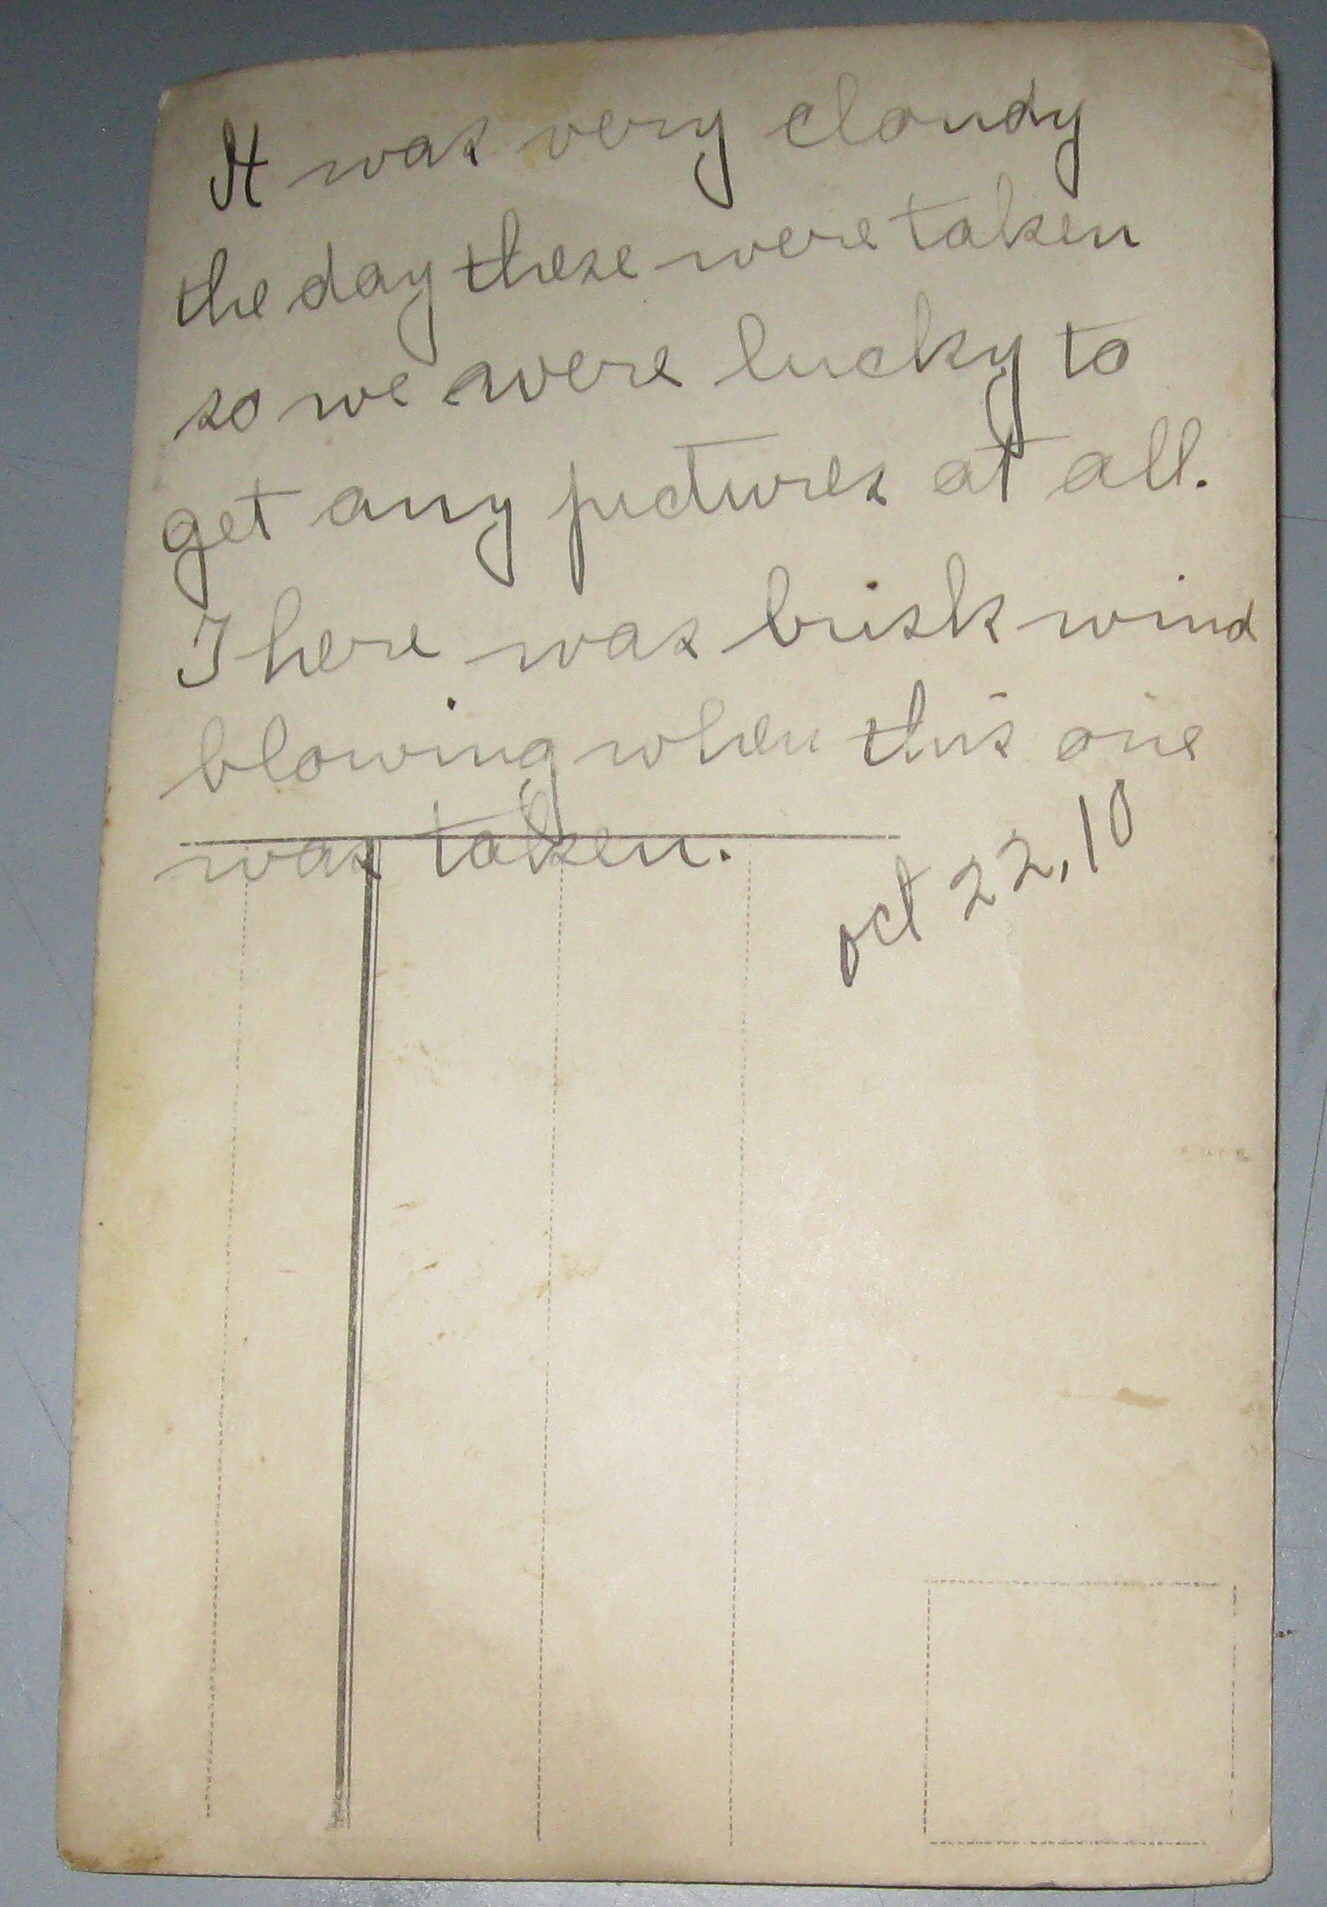 It was very cloudy
the day these were taken
so we were lucky to
get any pictures at all.
There was brisk wind
blowing when this one
was taken.
oct 22, 10